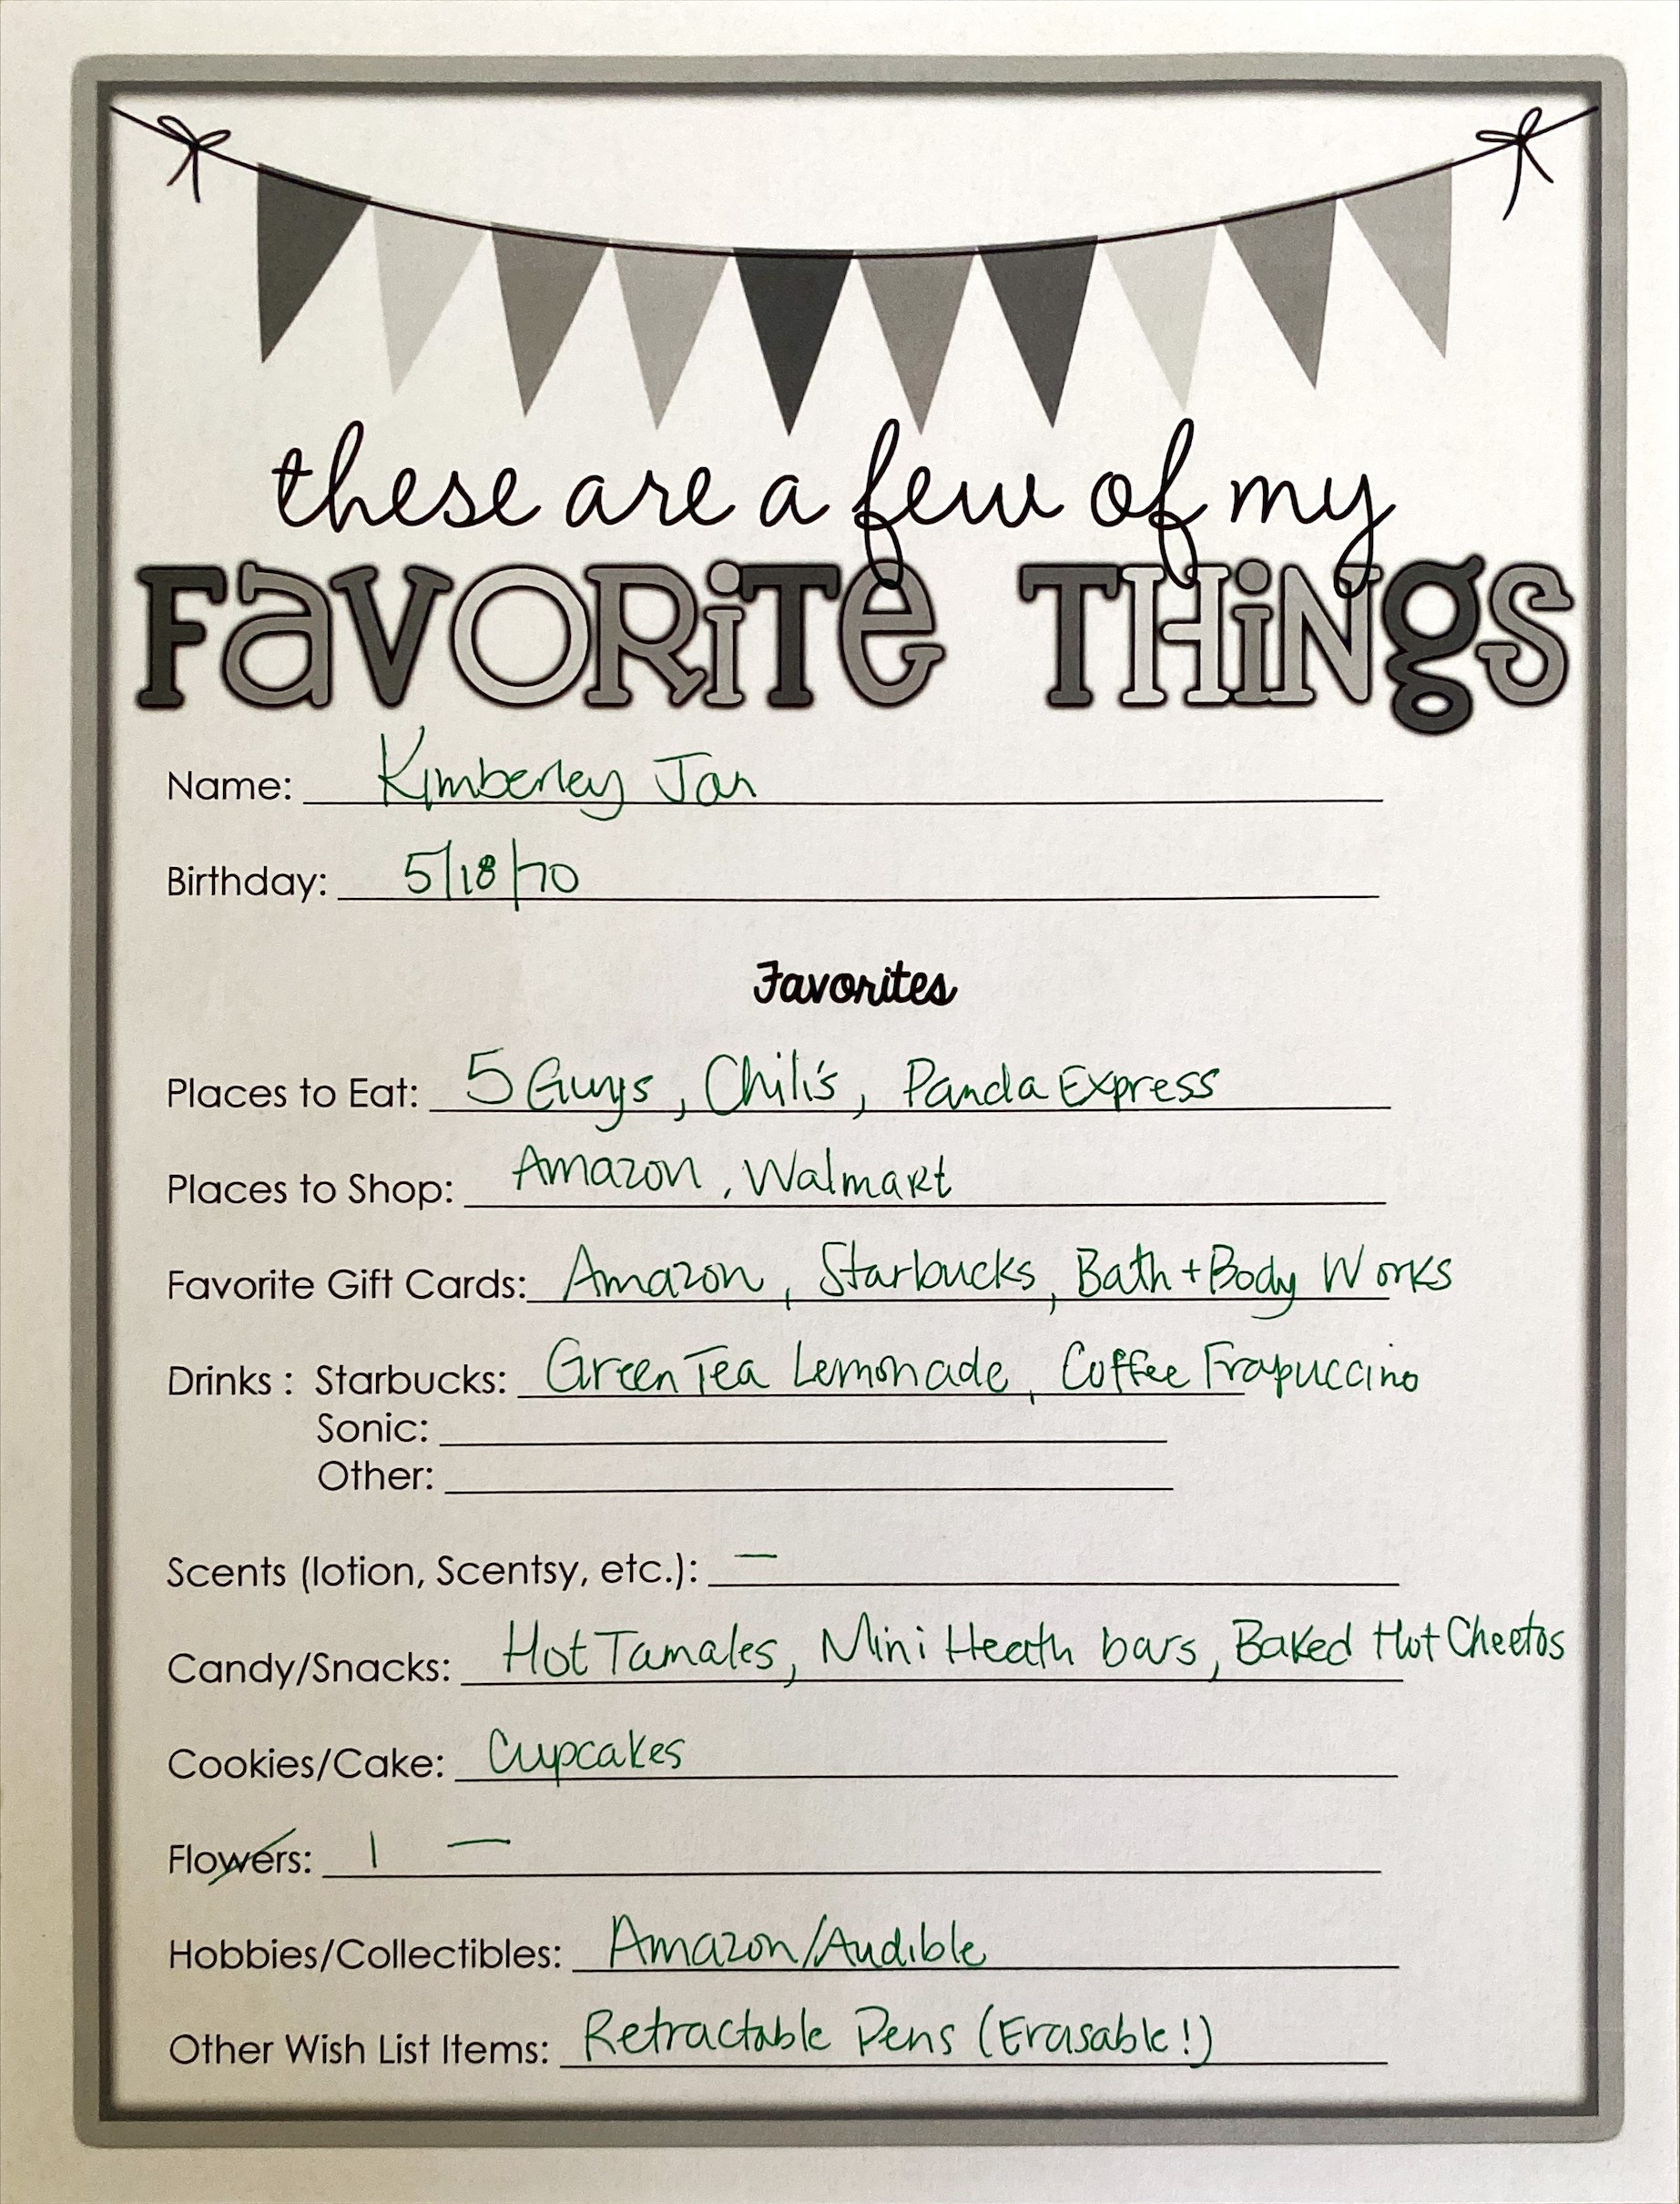 these are a few of my
FaVORiTe THiNgS
Name: Kimberley Jan
Birthday: 5/18/70
Favorites
Places to Eat: 5 Guys, Chili's, Panda Express
Places to Shop: Amazon, Walmart
Favorite Gift Cards: Amazon, Starbucks, Bath + Body Works
Drinks : Starbucks: Green Tea Lemonade, Coffee Frapuccino
Sonic:
Other:
Scents (lotion, Scentsy, etc.): —
Candy/Snacks: Hot Tamales, Mini Heath bars, Baked Hot Cheetos
Cookies/Cake: Cupcakes
Flowers: | —
Hobbies/Collectibles: Amazon/Audible
Other Wish List Items: Retractable Pens (Erasable!)